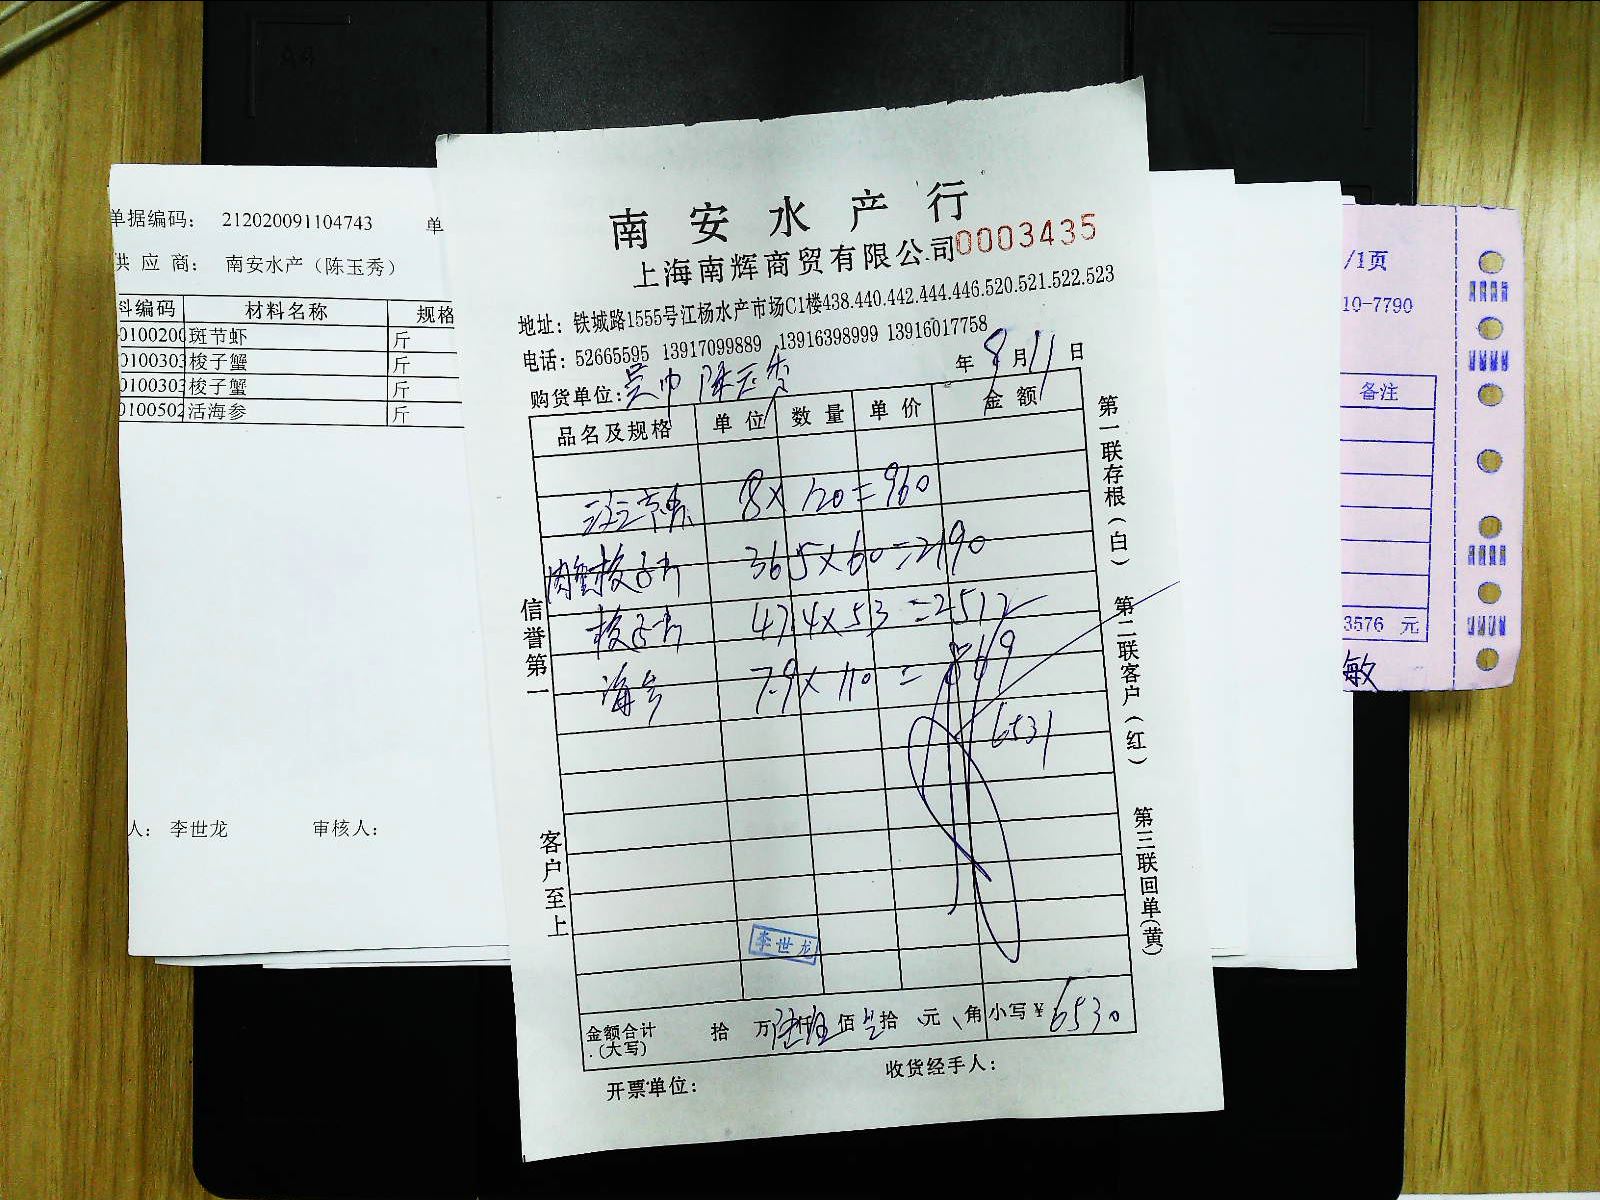 南安水产行
上海南辉商贸有限公司0003435
地址：铁城路1555号江杨水产市场C1楼438.440.442.444.446.520.521.522.523
电话：52665595 13917099889 13916398999 13916017758
年8月11日
购货单位：吴中 陈玉秀
品名及规格 单位 数量 单价 金额
8×120=960
36.5×60=2190
梭子 47.4×53=2512
海参 7.9×110=869
6531
李世龙
金额合计(大写) 拾 万 陆仟伍佰 拾 元 角 小写¥6530
开票单位：
收货经手人：
信誉第一
客户至上
第一联存根(白)
第二联客户(红)
第三联回单(黄)
单据编码： 212020091104743 单
供应商： 南安水产（陈玉秀）
料编码 材料名称 规格
0100200 斑节虾 斤
0100303 梭子蟹 斤
0100303 梭子蟹 斤
0100502 活海参 斤
人： 李世龙 审核人：
/1页
10-7790
备注
3576 元
敏